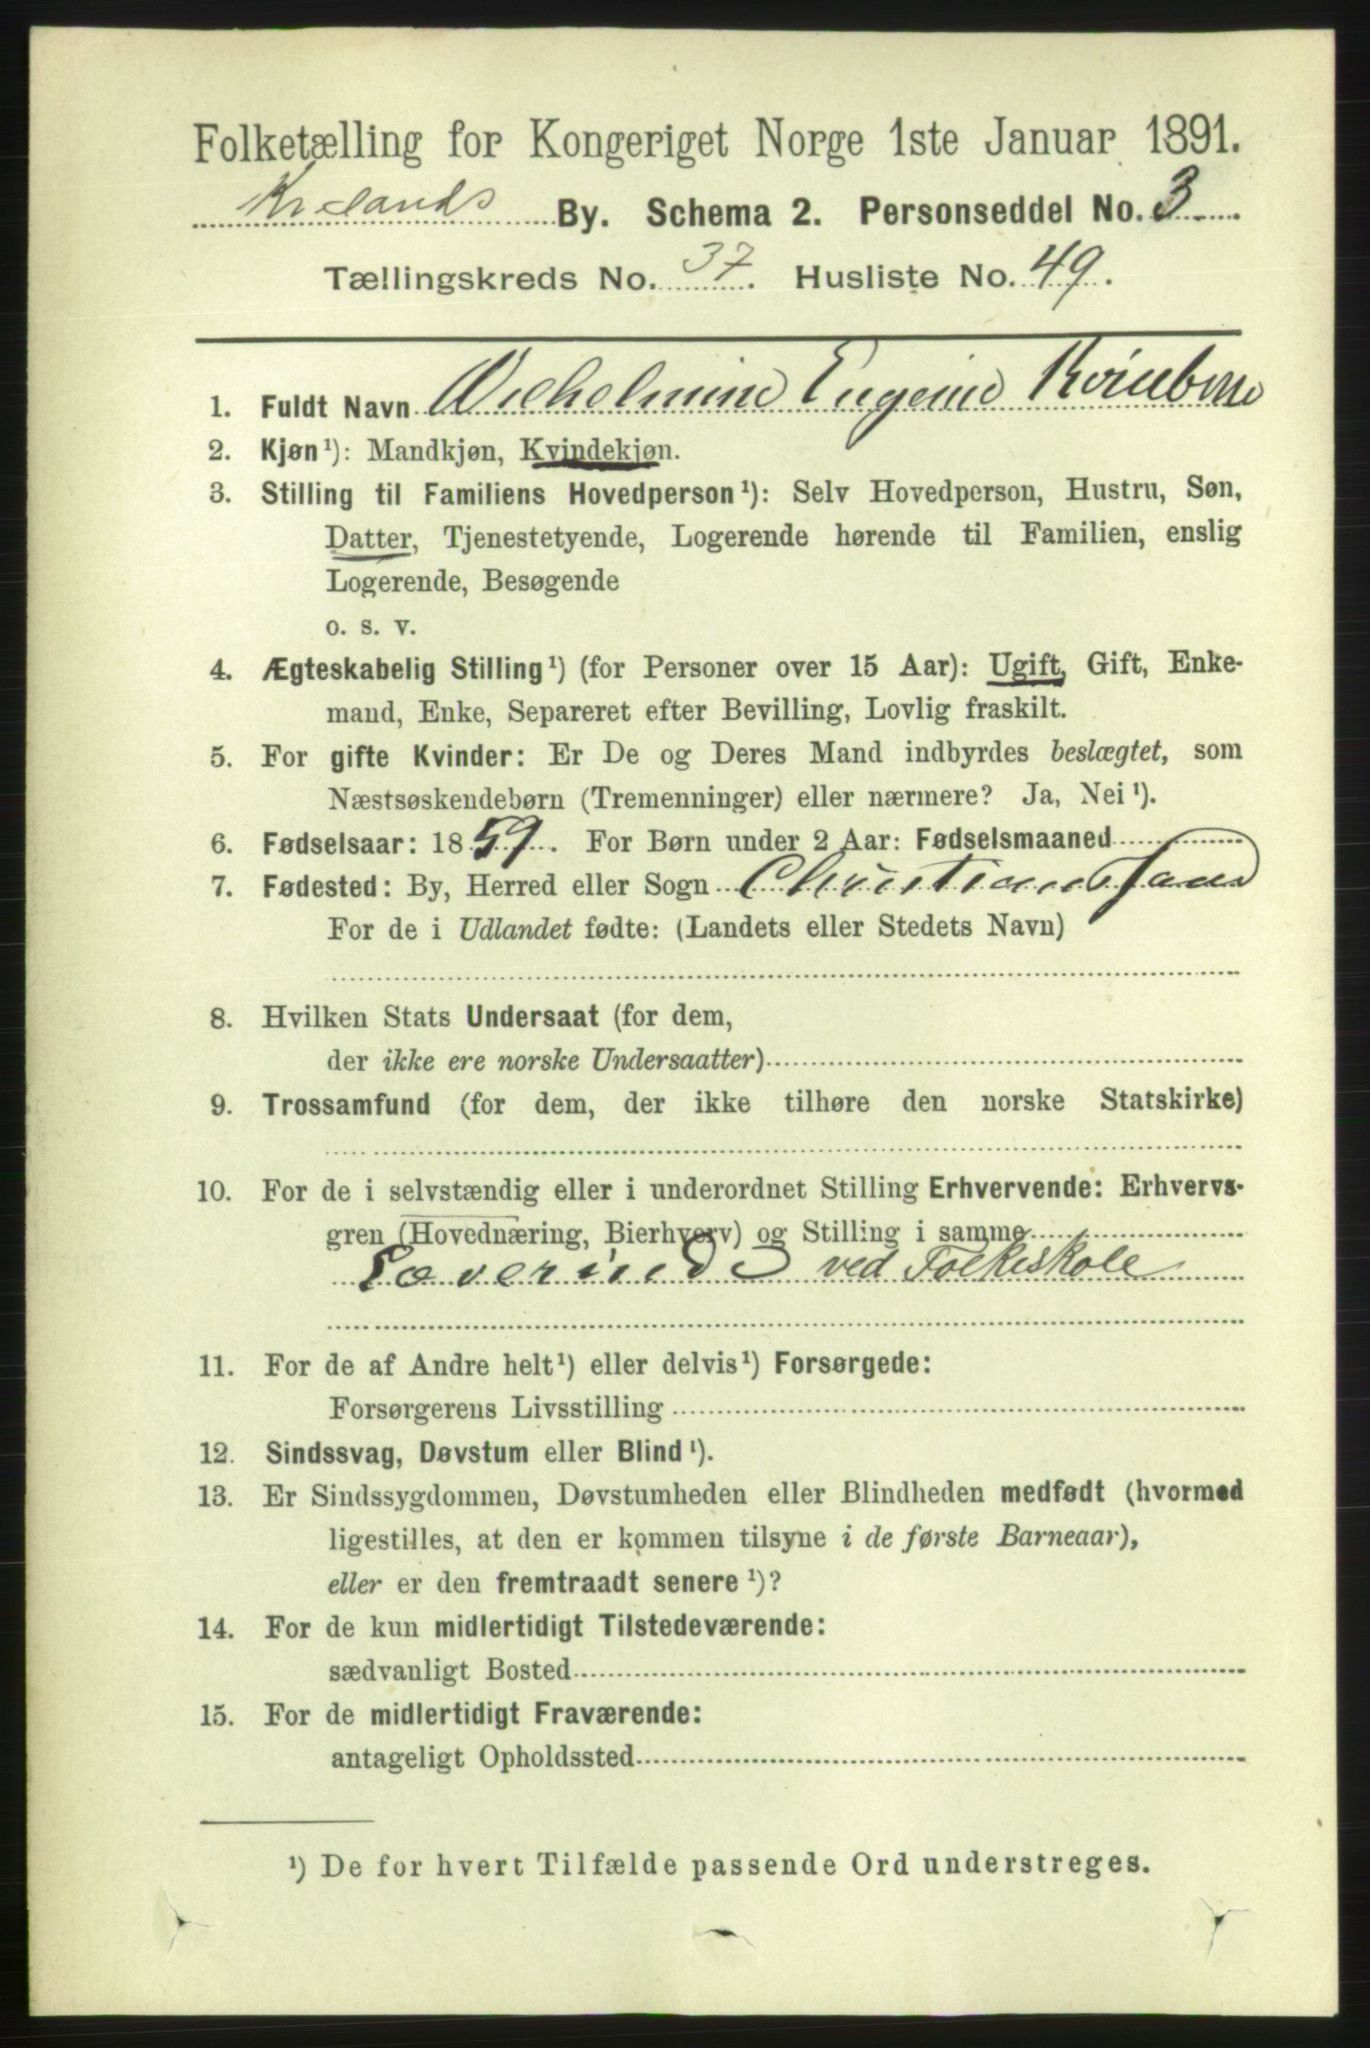 Folketælling for Kongeriget Norge 1ste Januar 1891.
Krsands By. Schema 2. Personseddel No. 3
Tællingskreds No. 37. Husliste No. 49.
1. Fuldt Navn Wilhelmine Eugenie
2. Kjøn¹): Mandkjøn, Kvindekjøn.
3. Stilling til Familiens Hovedperson¹): Selv Hovedperson, Hustru, Søn,
Datter, Tjenestetyende, Logerende hørende til Familien, enslig
Logerende, Besøgende
o. s. v.
4. Ægteskabelig Stilling¹) (for Personer over 15 Aar): Ugift, Gift, Enke-
mand, Enke, Separeret efter Bevilling, Lovlig fraskilt.
5. For gifte Kvinder: Er De og Deres Mand indbyrdes beslægtet, som
Næstsøskendebørn (Tremenninger) eller nærmere? Ja, Nei¹).
6. Fødselsaar: 1859. For Børn under 2 Aar: Fødselsmaaned
7. Fødested: By, Herred eller Sogn Christianssand
For de i Udlandet fødte: (Landets eller Stedets Navn)
8. Hvilken Stats Undersaat (for dem,
der ikke ere norske Undersaatter)
9. Trossamfund (for dem, der ikke tilhøre den norske Statskirke)
10. For de i selvstændig eller i underordnet Stilling Erhvervende: Erhvervs-
gren (Hovednæring, Bierhverv) og Stilling i samme
Læverinde ved Folkeskole
11. For de af Andre helt¹) eller delvis¹) Forsørgede:
Forsørgerens Livsstilling
12. Sindssvag, Døvstum eller Blind¹).
13. Er Sindssygdommen, Døvstumheden eller Blindheden medfødt (hvormed
ligestilles, at den er kommen tilsyne i de første Barneaar),
eller er den fremtraadt senere¹)?
14. For de kun midlertidigt Tilstedeværende:
sædvanligt Bosted
15. For de midlertidigt Fraværende:
antageligt Opholdssted
¹) De for hvert Tilfælde passende Ord understreges.